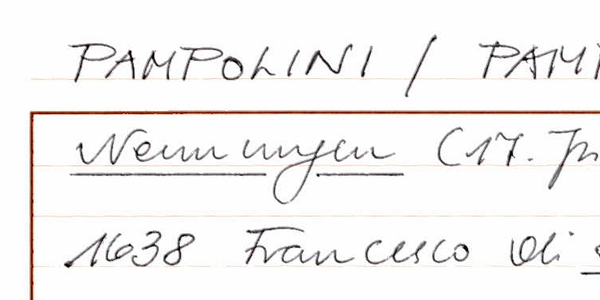 PAMPOLINI / PAMP
Nennungen (17. Jh
1638 Francesco di